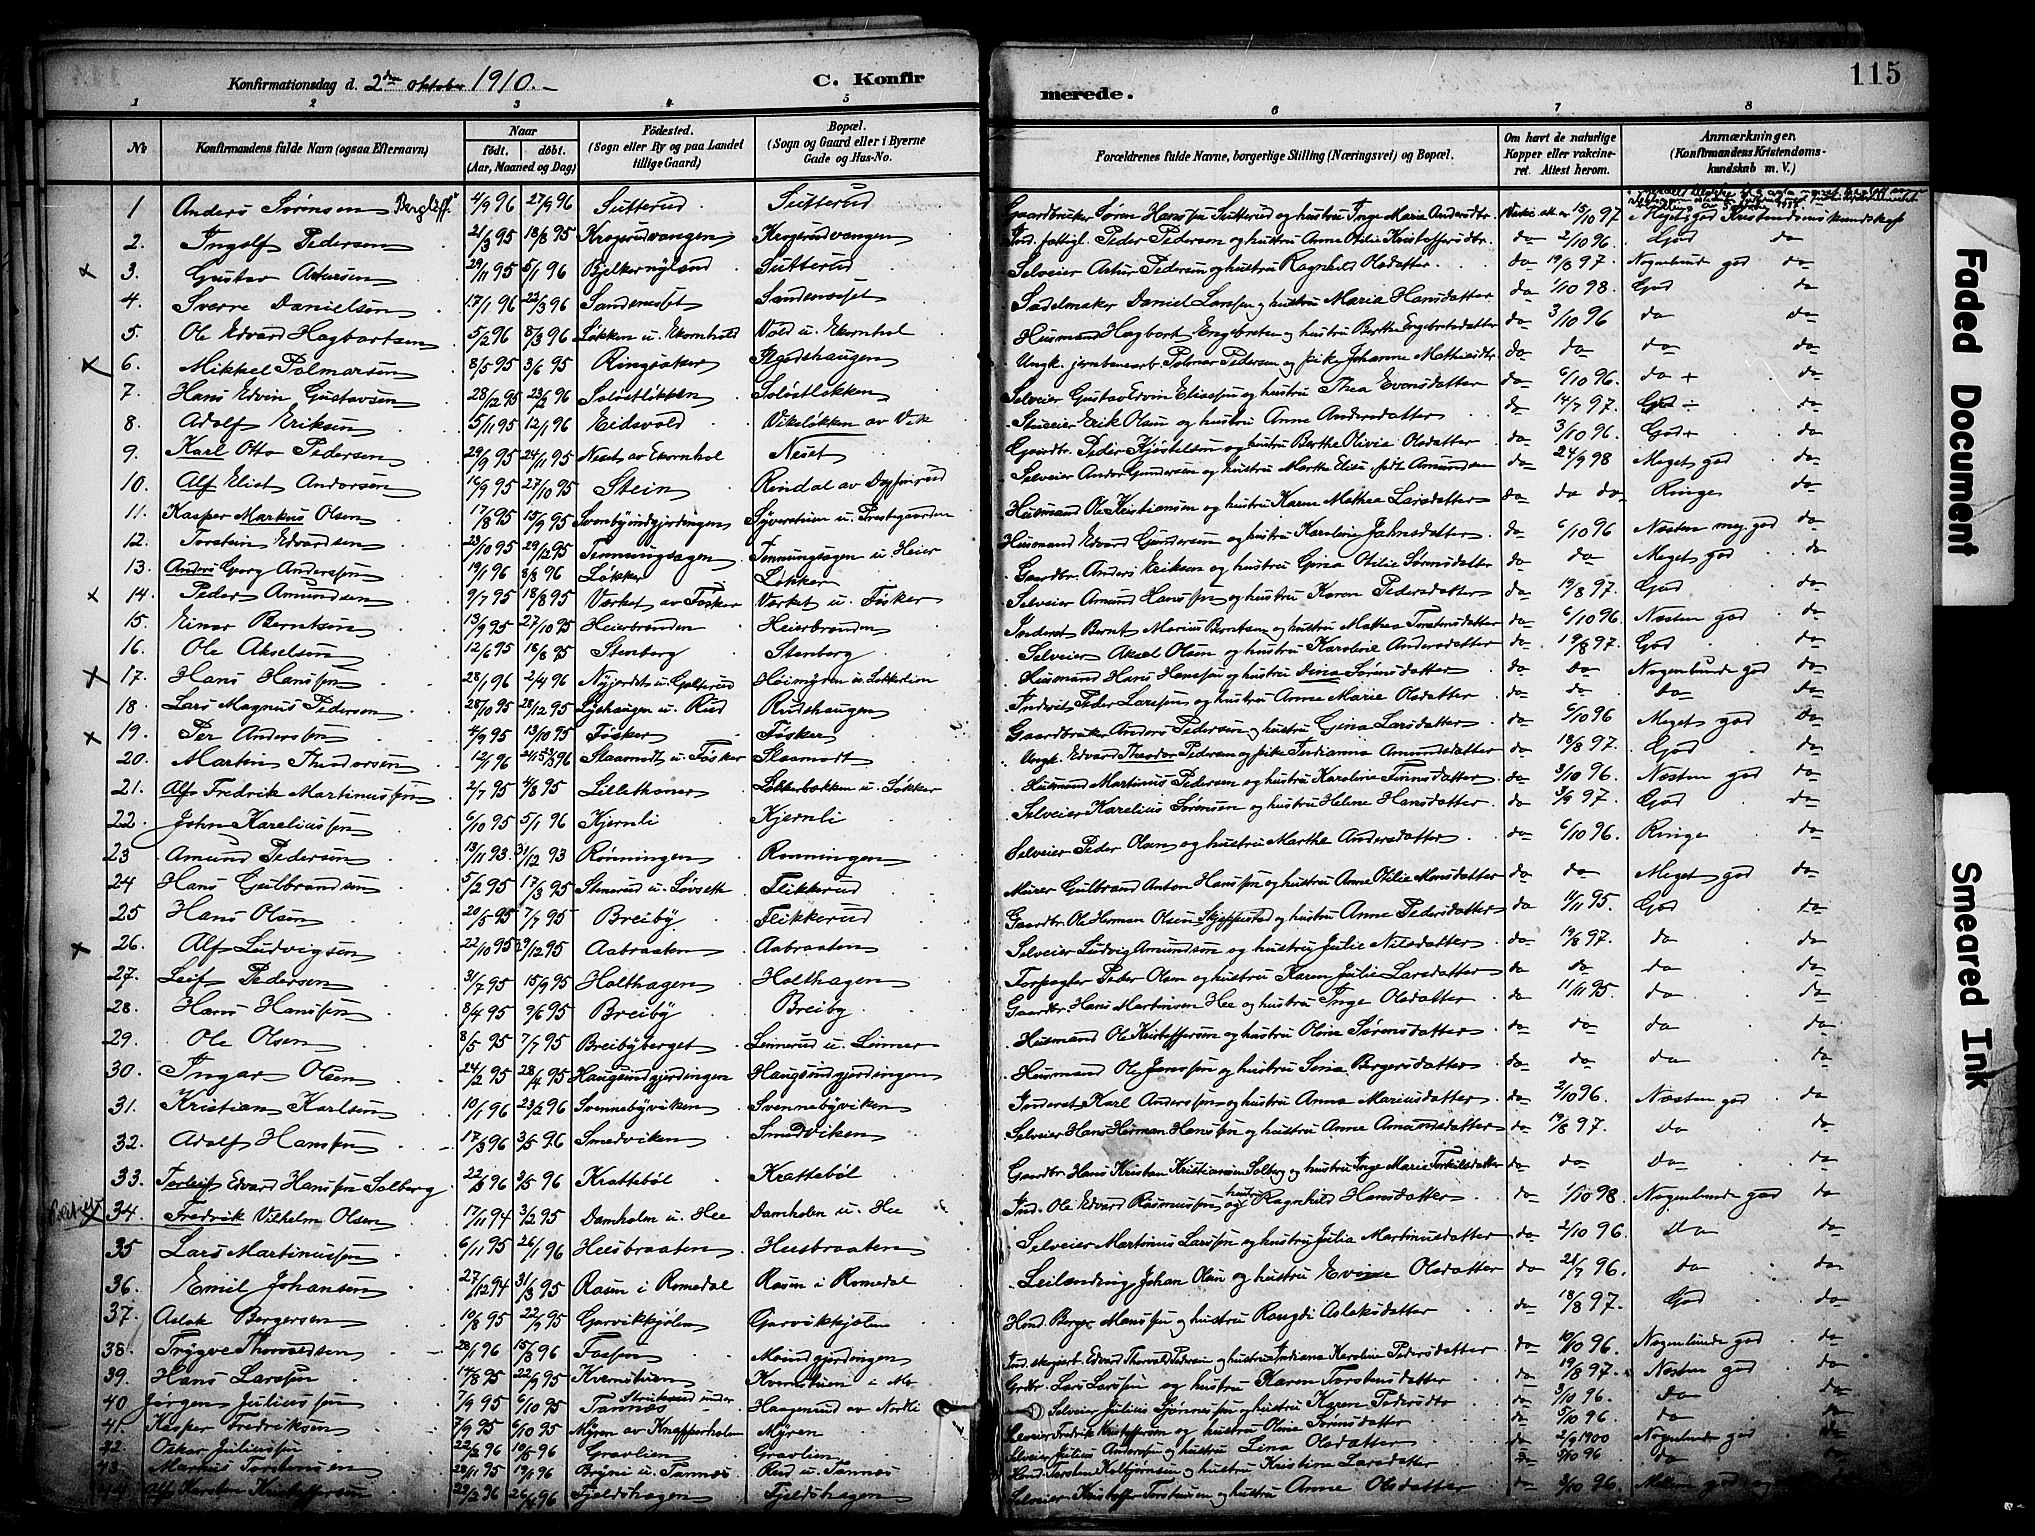 115
Konfirmationsdag d. 2den Oktober 1910.
C. Konfirmerede.
1 2 3 4 5 6 7 8
No
Konfirmandens fulde Navn (ogsaa Efternavn)
Naar
født. døbt.
(Aar, Maaned og Dag)
Fødested.
(Sogn eller By og paa Landet tillige Gaard)
Bopæl.
(Sogn og Gaard eller i Byerne Gade og Hus-No.
Forældrenes fulde Navne, borgerlige Stilling (Næringsvei) og Bopæl.
Om havt de naturlige Kopper eller vakcineret. Attest herom.
Anmærkninger.
(Konfirmandens Kristendomskundskab m. V.)
1 Anders Sørensen Bergliff 4/9 96 27/9 96 Sutterud Sutterud Gaardbruker Søren Hanssøn Sutterud og hustru Inge Maria Andersdtr. 15/10 97 Meget god Kristendomskundskap
2. Ingolf Pedersen 21/3 95 18/8 95 Krogsrudvangen Krogsrudvangen Peder Pedersen og hustru Anne Otilie Kristoffersdtr. do 2/10 96. God do
3. Gustav Artursen 29/11 95 5/1 96 Bjelkernyland Sutterud Selveier Artur Pedersen og hustru Ragnhild Olsdatter do 19/8 97. Nogenlunde god do
4. Sverre Danielsen 17/1 96 22/3 96 Sandeneset Sandeneset Sadelmaker Daniel Larssøn og hustru Maria Hansdatter do 1/10 98. God do
5. Ole Edvard Hagbartsen 5/2 96 8/3 96 Løkken u. Ekornhold Vold u. Ekornhol Husmand Hagbart Engebretsen og hustru Berthe Engebretsdatter do 3/10 96 do do
6. Mikkel Palmarsen 8/5 95 3/6 95 Ringsaker Ungk. jernbanearb. Palmar Pedersen og pike Johanne Mathiasdtr. do do do do
7. Hans Edvin Gustavsen 28/12 95 23/2 96 Soløstløkken Soløstløkken Selveier Gustav Edvin Eliassøn og hustru Thea Evensdatter do 6/10 96. do + do
8. Adolf Eriksen 5/11 95 12/1 96 Eidsvold Viksløkken av Vik Erik Olsen og hustru Anne Andersdatter do 14/7 97. God do
9. Karl Otto Pedersen 29/9 95 24/11 95 Neset av Ekornhol Neset Gaardbr. Peder Kjøstelsen og hustru Berthe Olivia Olsdatter do 3/10 96. God + do
10. Alf Eliot Andersen 16/9 95 27/10 95 Stein Rindal av Dagfinrud Selveier Anders Gundersen og hustru Marthe Elise født Amundsen do 24/9 98 Meget god do
11. Kasper Markus Olsen 17/8 95 15/9 95 Svenbyindgjerdingen Syverstuen u. Prestegaarden Husmand Ole Kristiansen og hustru Karen Mathea Larsdatter do do do Ringe do
12. Torstein Edvardsen 23/10 95 29/12 95 Temmingsagen Temmungsagen u. Heier Husmand Edvard Gundersen og hustru Karoline Johnsdatter do 6/10 96 Næsten meg. god do
13. Anders Georg Anderssøn 19/1 96 8/3 96 Løkker Løkker Gaardbr. Anders Eriksen og hustru Gina Otilie Sørensdatter do do Meget god do
14. Peder Amundsen 9/7 95 18/8 95 Værket av Fosker Værket u. Fosker Selveier Amund Hanssøn og hustru Karen Pedersdatter do 19/8 97. God do
15. Einar Berntsen 13/9 95 27/10 95 Heierbraaden Heierbraaden Inderst Bernt Marius Berntsen og hustru Mathea Torstensdatter do 6/10 96. Næsten god do
16. Ole Akselsen 12/6 95 18/8 95 Stenberg Stenberg Selveier Aksel Olsen og hustru Karoline Andersdatter do 19/8 97. God do
17. Hans Hanssøn 28/1 96 2/4 96 Nyjordet u. Galterud Høimyren u. Løkkerlien Husmand Hans Hanssøn og hustru Dina Sørensdatter do do Nogenlunde god do
18. Lars Magnus Pedersen 28/10 95 28/12 95 Lyshaugen u. Rud Rudshaugen Peder Larssøn og hustru Anne Marie Olsdatter do do do do
19. Per Anderssøn 4/9 95 13/10 95 Fosker Fosker Gaardbruker Anders Pedersen og hustru Gina Larsdatter do 6/10 96 Meget god do
20. Martin Theodorsen 12/1 96 Staamodt u. Fosker Staamodt Ungk. Edvard Theodor Pedersen og pike Indianna Amundsdatter do 18/8 97. God do
21. Alf Fredrik Martinussøn 2/7 95 4/8 95 Lillethoner Løkkerbakken u. Løkker Husmand Martinius Pedersen og hustru Karoline Finnsdatter do 3/10 96. Næsten god do
22. John Kareliussøn 6/10 95 5/1 96 Kjernli Kjernli Selveier Karelius Sørensen og hustru Helene Hansdatter do 3/9 97. God do
23 Amund Pedersen 13/11 93. 31/12 93 Rønningen Rønningen Selveier Peder Olsen og hustru Marthe Andersdatter do 6/10 96. Ringe do
24 Hans Gulbrandsen 5/2 95 17/3 95 Stenerud u. Løvseth Flikkerud Murer Gulbrand Anton Hanssøn og hustru Anne Otilie Monsdatter do do Meget god do
25 Hans Olsen 20/5 95 7/7 95 Breiby Flikkerud Gaardbr. Ole Herman Olsen Skjeppestad og hustru Anne Pedersdatter do 11/11 95. God do
26. Alf Ludvigsen 22/10 95 29/12 95 Aabraaten Aabraaten Selveier Ludvig Amundsen og hustru Julie Nilsdatter do 19/8 97. do do
27. Leif Pedersen 31/7 95 15/9 95 Holthagen Holthagen Forpagter Peder Olsen og hustru Karen Julie Larsdatter do do do do
28. Hans Hanssøn 8/4 95 9/6 95 Breiby Breiby Gaardbr. Hans Martinsen Hee og hustru Inge Olsdatter do 11/11 95. do do
29. Ole Olsen 8/5 95 7/7 95 Breibyberget Leinerud u. Leiner Husmand Ole Kristoffersen og hustru Oline Sørensdatter do do do do
30. Ingar Olsen 24/2 95 28/4 95 Haugsindgjerdingen Haugsindgjerdingen Husmand Ole Jenssøn og hustru Lina Bergersdatter do do do do
31. Kristian Karlsen 10/1 96 23/2 96 Svennebyviken Svennebyviken Inderst Karl Anderssøn og hustru Anna Mariusdatter do 2/10 96. Næsten god do
32. Adolf Hanssøn 17/3 96 3/5 96 Smedviken Smedviken Selveier Hans Herman Hanssøn og hustru Anne Amundsdatter do 19/8 97. do do
33. Torleif Edvard Hanssøn Solberg 22/3 96 3/5 96 Krattebøl Krattebøl Gaardbr. Hans Kristian Kristiansen Solberg og hustru Inge Marie Torkilsdatter do do do do
34. Fredrik Vilhelm Olsen 17/11 94 3/2 95 Damholen u. Hee Damholen u. Hee Ind. Ole Edvard Rasmussøn og hustru Ragnhild Hansdatter do 1/10 98. Nogenlunde god do
35 Lars Martinussøn 6/11 95 26/1 96 Heesbraaten Heesbraaten Selveier Martinus Larssøn og hustru Julia Martinusdatter do 2/10 96. do do
36. Emil Johansen 27/12 94 31/3 95 Rasen i Romedal Rasen i Romedal Leilending Johan Olsen og hustru Evine Olsdatter do 21/7 96. do do
37. Aslak Bergersen 10/8 95 22/9 95 Garvikkjølen Garvikkjølen Hmd. Berger Monssøn og hustru Rangdi Aslaksdatter do 18/8 97. God do
38. Trygve Thorvaldsen 28/1 96 15/3 96 Fossen Moindgjerdingen Edvard Thorvald Pedersen og hustru Indiana Karoline Pedersdatter do 10/10 96. Nogenlunde god do
39. Hans Larssøn 14/8 95 22/9 95 Kvernstuen Kvernstuen i Mo Grdbr. Lars Larssøn og hustru Karen Torstensdatter do 19/8 97. Næsten god do
40 Jørgen Juliussøn 7/9 95 6/10 95 Strutrud under Tannæs Haagenrud av Nordli Selveier Julius Jørgensen og hustru Karen Pedersdtr do 3/10 96. do do
41. Kasper Fredriksen 7/9 95 6/10 95 Myren av Knapperholen Myren Selveier Fredrik Kristoffersen og hustru Oline Sørensdatter do 5/10 96. do do
42. Oskar Juliussøn 22/2 96 19/5 96 Gravlien Gravlien Selveier Julius Anderssøn og hustru Lina Olsdatter do 2/9 1900 Nogenlunde god do
43. Markus Torstensen 28/11 95 19/1 96 Bryni u. Tannæs Rud u. Tannæs Hmd. Torsten Kolbjørnsen og hustru Kristine Larsdatter do 5/10 96 do do
44. Alf Karsten Kristoffersen 29/2 96 26/5 96 Fjeldshagen Fjeldshagen Selveier Kristoffer Torstensen og hustru Anne Olsdatter do 3/10 96. god
Faded Document
Smeared Ink